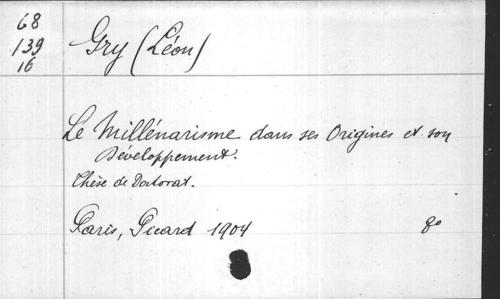 68
139
16
Gry (Léon)
Le Millénarisme dans ses Origines et son
Développement.
Thèse de Doctorat.
Paris, Picard 1904 8º